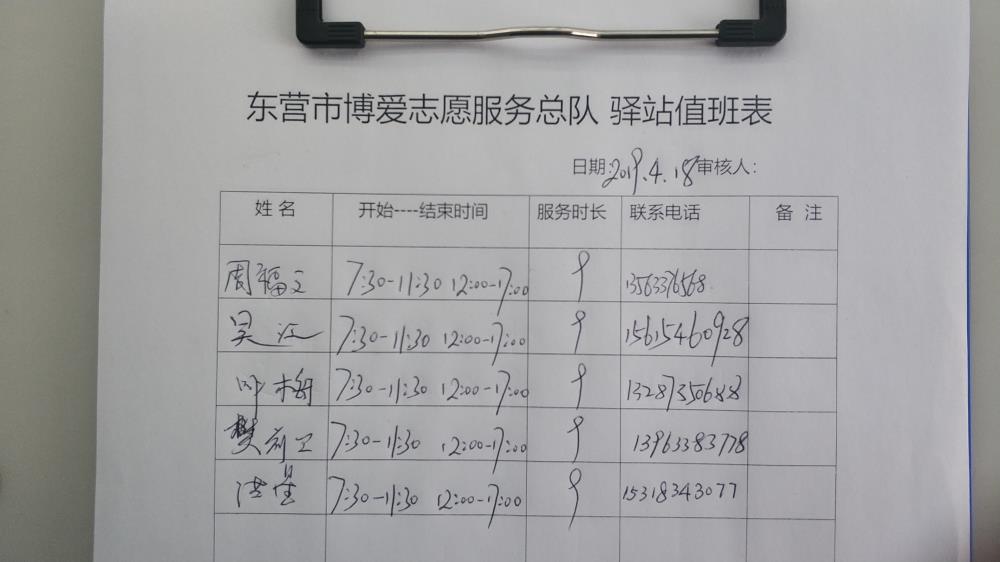 东营市博爱志愿服务总队 驿站值班表
日期:2019.4.18 审核人:
姓名 开始----结束时间 服务时长 联系电话 备注
周福文 7:30-11:30 12:00-17:00 9 1356376568
吴江 7:30-11:30 12:00-17:00 9 15615460928
叶梅 7:30-11:30 12:00-17:00 9
樊 卫 7:30-11:30 12:00-17:00 9 13963383778
7:30-11:30 12:00-17:00 9 15318343077